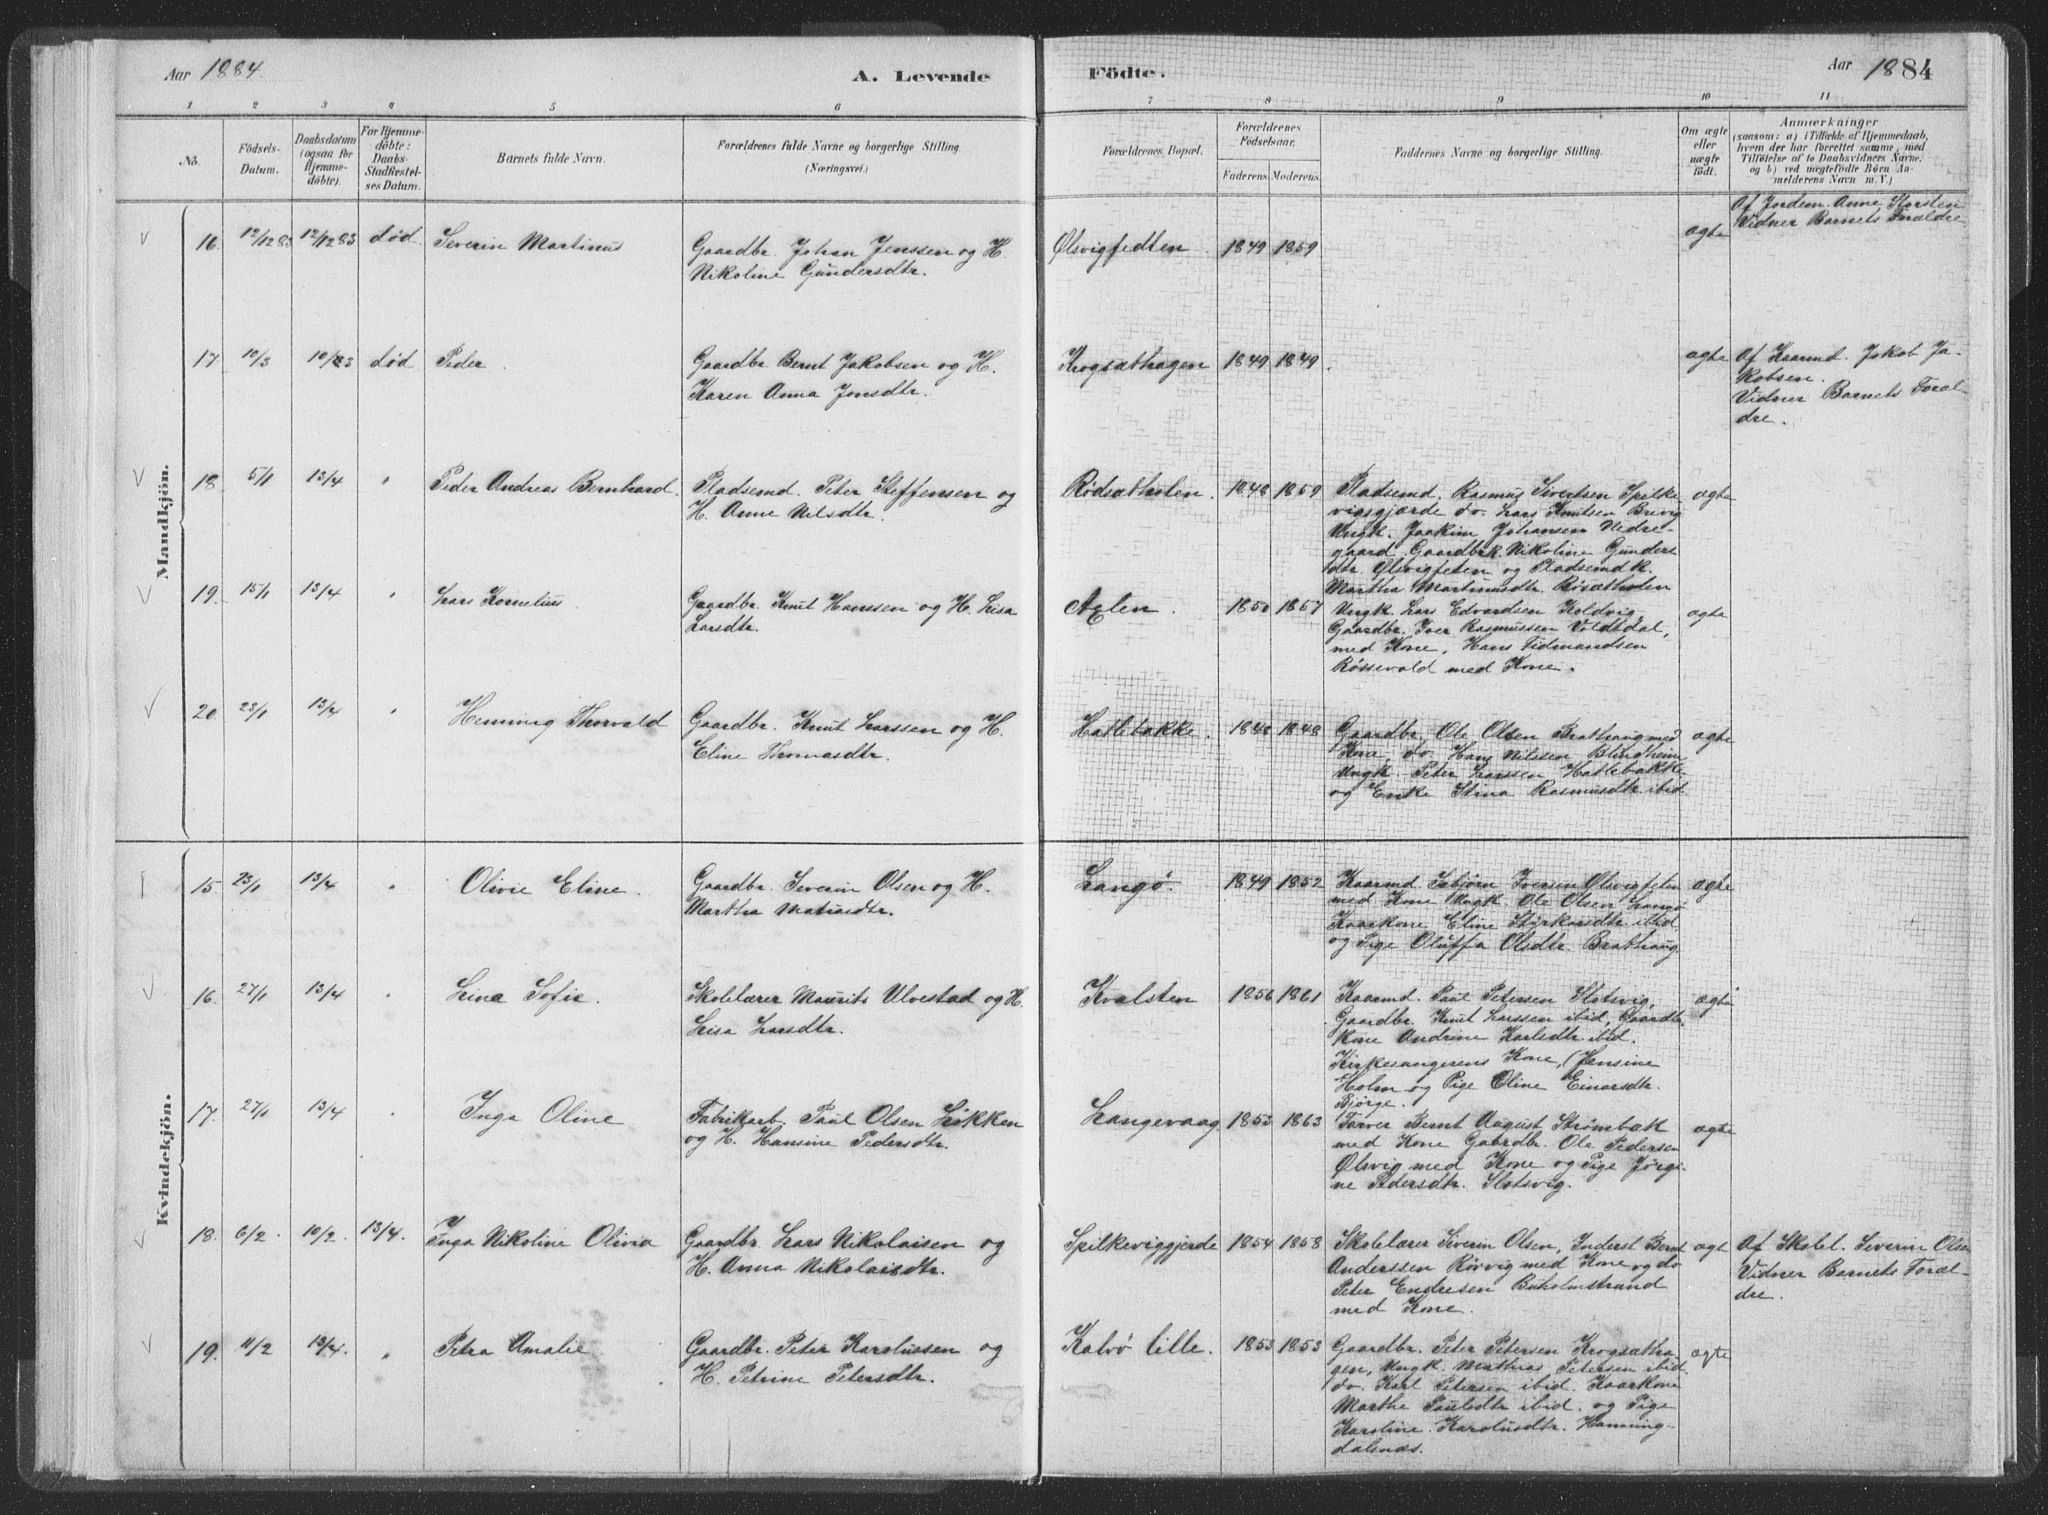 Aar 1884.
A. Levende
Födte.
Aar 1884
1 2 3 4 5 6 7 8 9 10 11
No.
Födsels-
Datum.
Daabsdatum
(ogsaa for
Hjemme-
döbte).
For Hjemme-
döbte:
Daabs-
Stadfæstel-
ses Datum.
Barnets fulde Navn.
Forældrenes fulde Navne og borgerlige Stilling.
(Næringsvei.)
Forældrenes Bopæl.
Forældrenes
Födselsaar.
Faderens. Moderens.
Faddernes Navne og borgerlige Stilling.
Om ægte
eller
uægte
födt.
Anmærkninger
(saasom: a) i Tilfælde af Hjemmedaab,
hvem der har forrettet samme, med
Tilföielse af to Daabsvidners Navne,
og b) ved uægtefödte Börn An-
melderens Navn m. V.)
Mandkjön.
16. 12/12 83 12/12 83 død. Severin Martinus
Gaardbr. Johan Jenssen og H.
Nikoline Gundersdtr.
Ølsvigfedten 1849 1859
ægte
Af Jordem. Anne Korsten
Vidner Barnets Forældre
17 10/3 10/3 død Peder
Gaardbr Bernt Jakobsen og H.
Karen Anna Jonsdtr.
Krogsæthagen 1849 1849
ægte
Af Kaarmd. Jakob Ja-
kobsen.
Vidner Barnets Foræl-
dre.
18 5/1 13/4 " Peder Andreas Bernhard.
Pladsemd. Peter Steffensen og
H. Anne Nilsdtr.
Rødsætholen. 1848 1859
Pladsemd. Rasmus Sivertsen Spilke
vigsgjærde do. Lars Knutsen Brevig
Ungk. Joakim Johansen Nedre-
gaard Gaardbrk. Nikoline Gunders
dtr. Ølsvigfeten og Pladsemdk.
Martha Martinusdtr. Røsætholen
ægte
19. 15/1 13/4 " Lars Kornelius
Gaardbr. Knut Hanssen og H. Lisa
Larsdtr.
Aylen. 1850 1857
Ungk. Lars Edvardsen Koldvig
Gaardbr. Iver Rasmussen Voldsdal,
med Kone, Hans Tidmandsen
Røssevold med Kone.
ægte
20. 23/1 13/4 " Henning Thorvald
Gaardbr. Knut Larssen og H.
Eline Thomasdtr.
Hatlebakke. 1848 1848
Gaardbr. Ole Olsen Brathaug med
Kone, do. Hans Nilssen Blindheim
Ungk. Peter Larssen, Hatlebakke
og Enke Stina Rasmusdtr. ibid
ægte
Kvindekjön.
15. 23/1 13/4 " Olivie Eline.
Gaardbr. Severin Olsen og H.
Martha Matiasdtr.
Langö. 1849 1852
Kaarmd. Esbjørn Iversen Ølsvigfeten
med Kone Ungk Ole Olsen Langø
Kaarkone Eline Styrkarsdtr. ibid
og Pige Oluffa Olsdtr. Brathaug
ægte
16. 27/1 13/4 " Lina Sofie.
Skolelærer Maurits Ulvestad og H.
Lisa Larsdtr.
Kvalsten 1856 1861
Kaarmd. Paul Petersen Slotsvig,
Gaardbr. Knut Larssen ibid, Gaardbr.
kone Andrine Karlsdtr. ibid.
Kirkesangerens Kone, Jensine
Holm og Pige Oline Einarsdtr.
Bjørge.
ægte
17. 27/1 13/4 " Inga Oline
Fabrikarb. Paul Olsen Løkken
og H. Hansine Pedersdtr.
Langevaag 1853 1863
Farver Bernt August Strømbæk
med Kone Gaardbr. Ole Pedersen
Ølsvig med Kone og Pige Jørgi-
ne Pedersdtr. Slotsvig.
ægte
18. 6/2. 10/2. 13/4. Inga Nikoline Olivia
Gaardbr Lars Nikolaisen og
H. Anna Nikolaisdtr.
Spilkeviggjerde 1854 1858
Skolelærer Severin Olsen, Inderst Bernt
Anderssen Rørvig med Kone og do
Peter Endresen Buholmstrand
med Kone.
ægt
Af Skolel. Severin Olsen
Vidner Barnets Foræl-
dre.
19. 11/2 13/4. " Petra Amalie.
Gaardbr. Peter Karolussen og
H. Petrine Petersdtr.
Kalvø lille. 1853 1853
Gaardbr. Peter Petersen Krogsætha-
gen, Ungk. Mathias Petersen ibid.
do. Karl Petersen ibid. Kaarkone
Marthe Paulsdtr ibid. og Pige
Karoline Karolusdtr. Hamning-
dalsnæs.
ægte